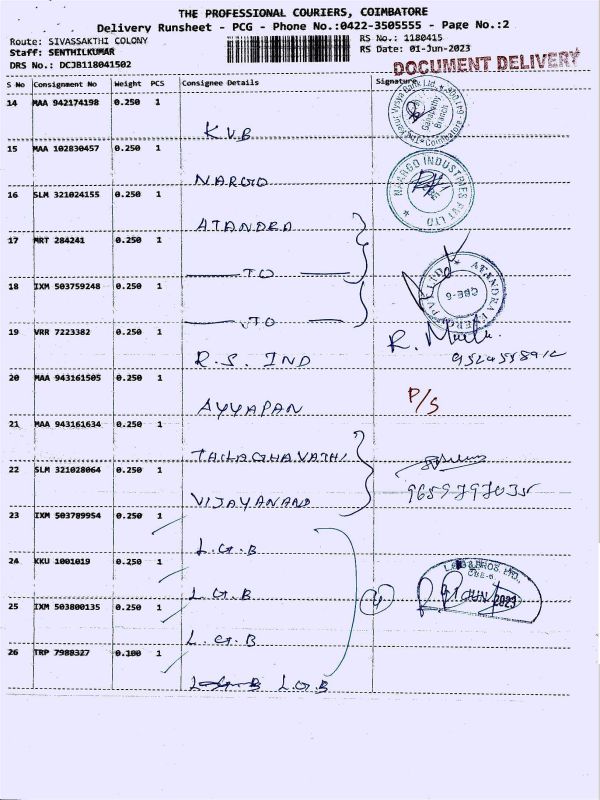 THE PROFESSIONAL COURIERS, COIMBATORE
Delivery Runsheet - PCG - Phone No.:0422-3505555 - Page No.:2
Route: SIVASSAKTHI COLONY
RS No.: 1180415
Staff: SENTHILKUMAR
RS Date: 01-Jun-2023
DRS No.: DCJB118041502
DOCUMENT DELIVERY
S No Consignment No Weight PCS Consignee Details Signature
14 MAA 942174198 0.250 1
K.V.B
15 MAA 102830457 0.250 1
NARGO
NAARGO INDUSTRIES PVT LTD
16 SLM 321024155 0.250 1
ATANDRA
17 MRT 284241 0.250 1
TO
18 IXM 503759248 0.250 1
TO
CBE-6
19 VRR 7223382 0.250 1
R.S. IND
20 MAA 943161505 0.250 1
AYYAPAN
P/S
21 MAA 943161634 0.250 1
22 SLM 321028064 0.250 1
VIJAYANAND
23 IXM 503789954 0.250 1
L.G.B
24 KKU 1001019 0.250 1
L.G.B
4
25 IXM 503800135 0.250 1
L.G.B
26 TRP 7988327 0.100 1
L.G.B L.G.B